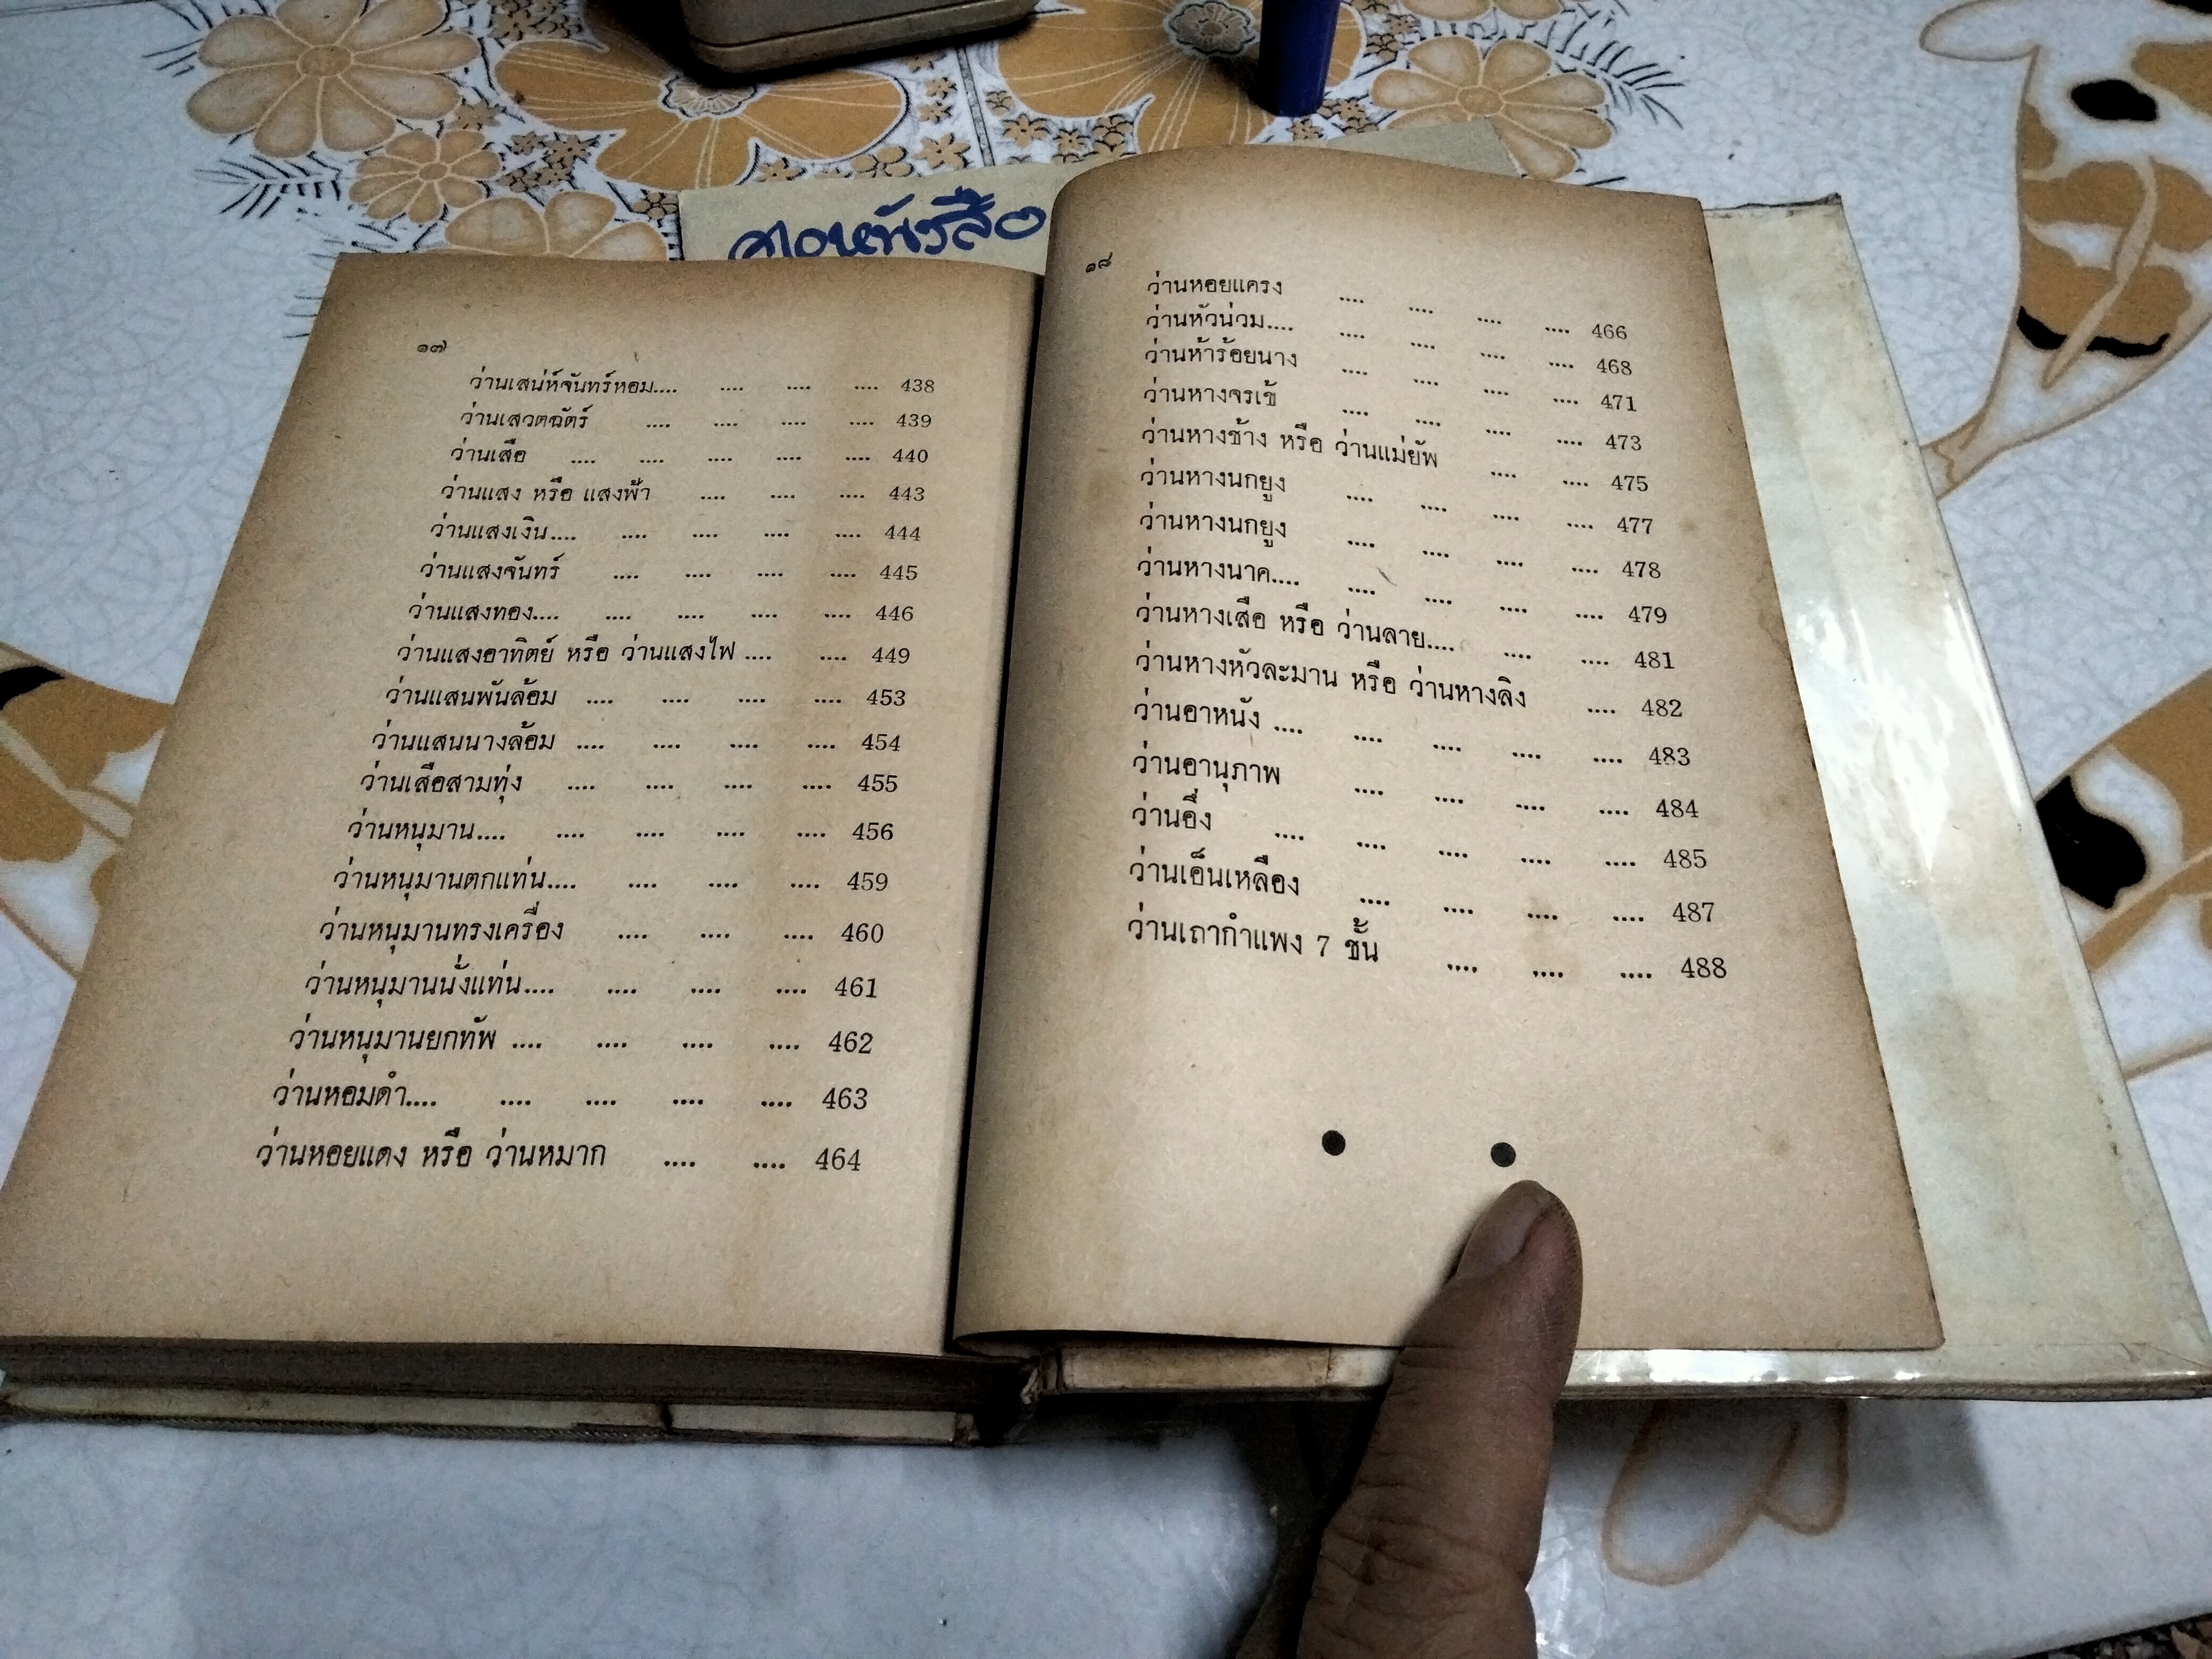 ๑๗
ว่านเสน่ห์จันทร์หอม.... .... .... .... 438
ว่านเสวตฉัตร์ .... .... .... .... 439
ว่านเสือ .... .... .... .... .... 440
ว่านแสง หรือ แสงฟ้า .... .... .... 443
ว่านแสงเงิน.... .... .... .... .... 444
ว่านแสงจันทร์ .... .... .... .... 445
ว่านแสงทอง.... .... .... .... .... 446
ว่านแสงอาทิตย์ หรือ ว่านแสงไฟ .... .... 449
ว่านแสนพันล้อม .... .... .... .... 453
ว่านแสนนางล้อม .... .... .... .... 454
ว่านเสือสามทุ่ง .... .... .... .... 455
ว่านหนุมาน.... .... .... .... .... 456
ว่านหนุมานตกแท่น.... .... .... .... 459
ว่านหนุมานทรงเครื่อง .... .... .... 460
ว่านหนุมานนั่งแท่น.... .... .... .... 461
ว่านหนุมานยกทัพ .... .... .... .... 462
ว่านหอมดำ.... .... .... .... .... 463
ว่านหอยแดง หรือ ว่านหมาก .... .... 464
๑๘
ว่านหอยแครง .... .... .... .... 466
ว่านหัวน่วม.... .... .... .... .... 468
ว่านห้าร้อยนาง .... .... .... .... 471
ว่านหางจรเข้ .... .... .... .... 473
ว่านหางช้าง หรือ ว่านแม่ยัพ .... .... 475
ว่านหางนกยูง .... .... .... .... 477
ว่านหางนกยูง .... .... .... .... 478
ว่านหางนาค.... .... .... .... .... 479
ว่านหางเสือ หรือ ว่านลาย.... .... .... 481
ว่านหางหัวละมาน หรือ ว่านหางลิง .... 482
ว่านอาหนัง .... .... .... .... .... 483
ว่านอานุภาพ .... .... .... .... 484
ว่านอึ่ง .... .... .... .... .... 485
ว่านเอ็นเหลือง .... .... .... .... 487
ว่านเถากำแพง 7 ชั้น .... .... .... 488